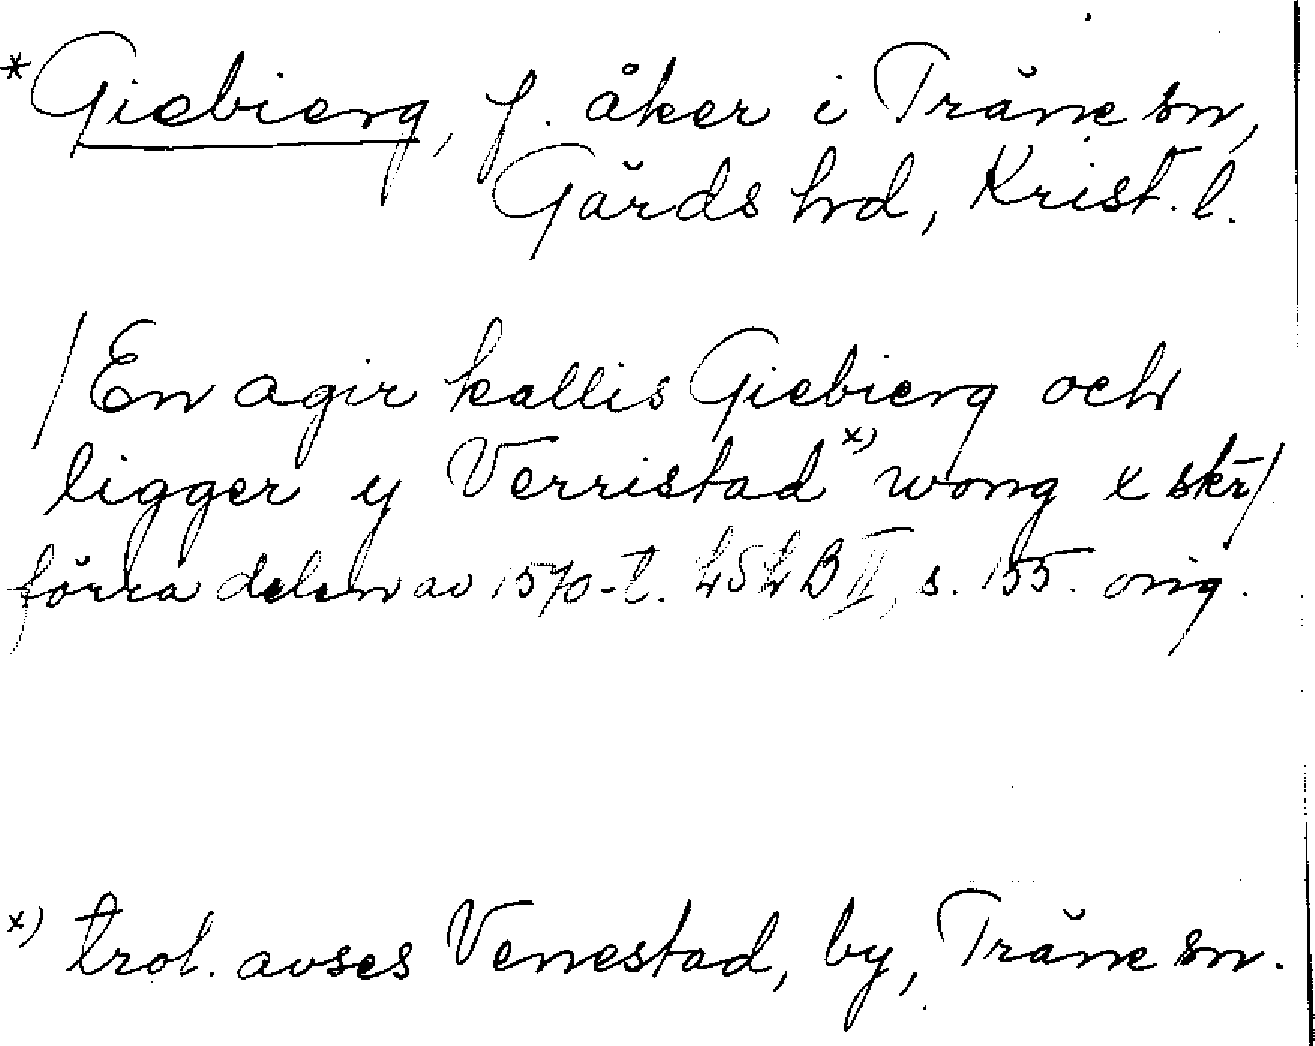 *Giebierg, f. åker i Träne sn,
Gärds hrd, Krist. l.
/En agir kallis Giebierg och
ligger y Verristad x) wong x skr/
förra delen av 1570-t. LSLB II, s. 155. orig.
x) trol. avses Vennestad, by, Träne sn.